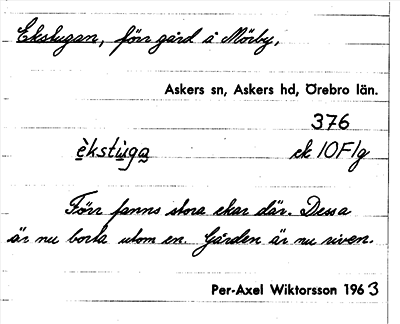 Ekstugan, förr gård å Mörby.
Askers sn, Askers hd, Örebro län.
376
èkstuga̲ ek 10F1g
Förr fanns stora ekar där. Dessa
är nu borta utom en. Gården är nu riven.
Per-Axel Wiktorsson 1963